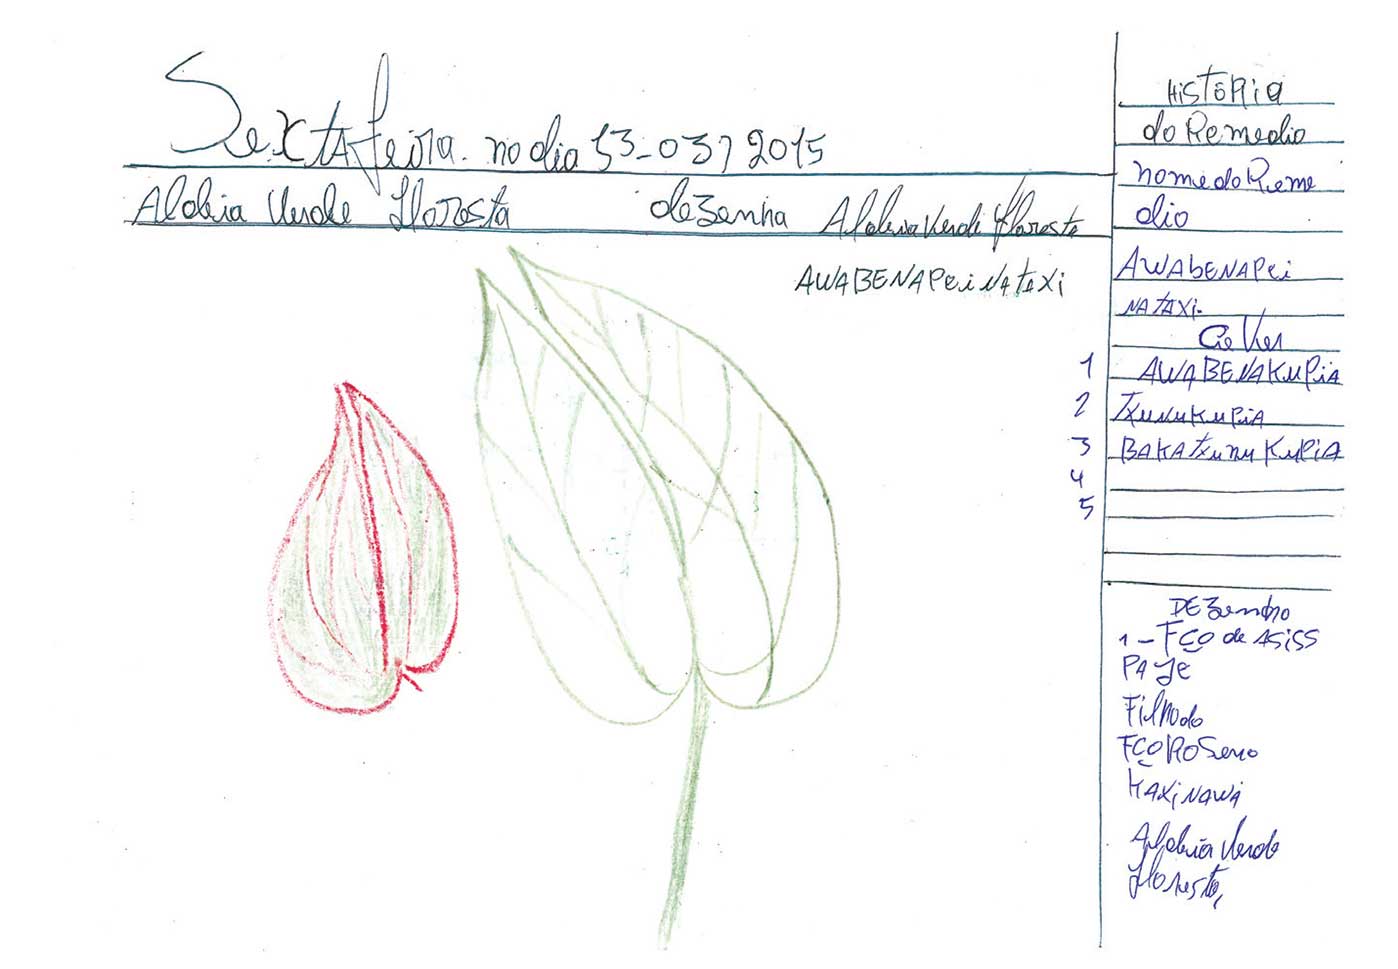 Sexta feira. no dia 13-03, 2015
Aldeia Verde Floresta dezenha Aldeia Verde Floresta
AWABENAPEINATAXI
HISTÓRIA
do Remedio
nome do Reme
dio
AWABENAPEI
NATAXI.
1 AWABENAKUPIA
2 TXUNUKUPIA
3 BAKATXUNUKUPIA
4
5
DEZenho
1-FCO de ASISS
PAJE
Filho do
FCO ROSeno
KAXINAWA
Aldeia Verde
Floresta,